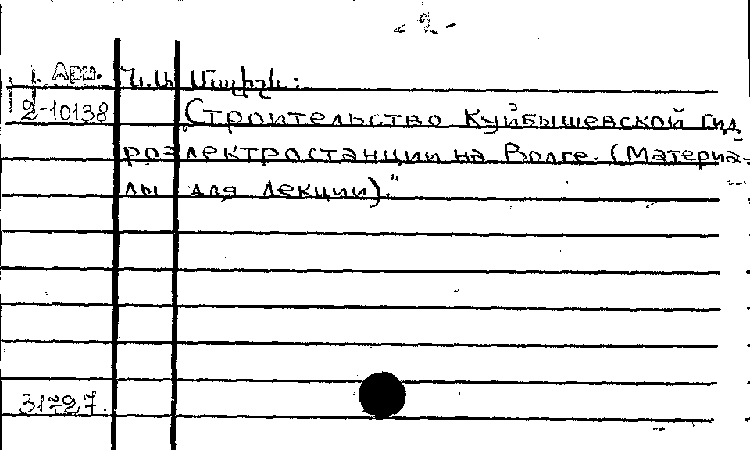 - 2 -
Арш.
2-10138 Строительство Куйбышевской гид
роэлектростанции на Волге. (Материа-
лы для лекции)."